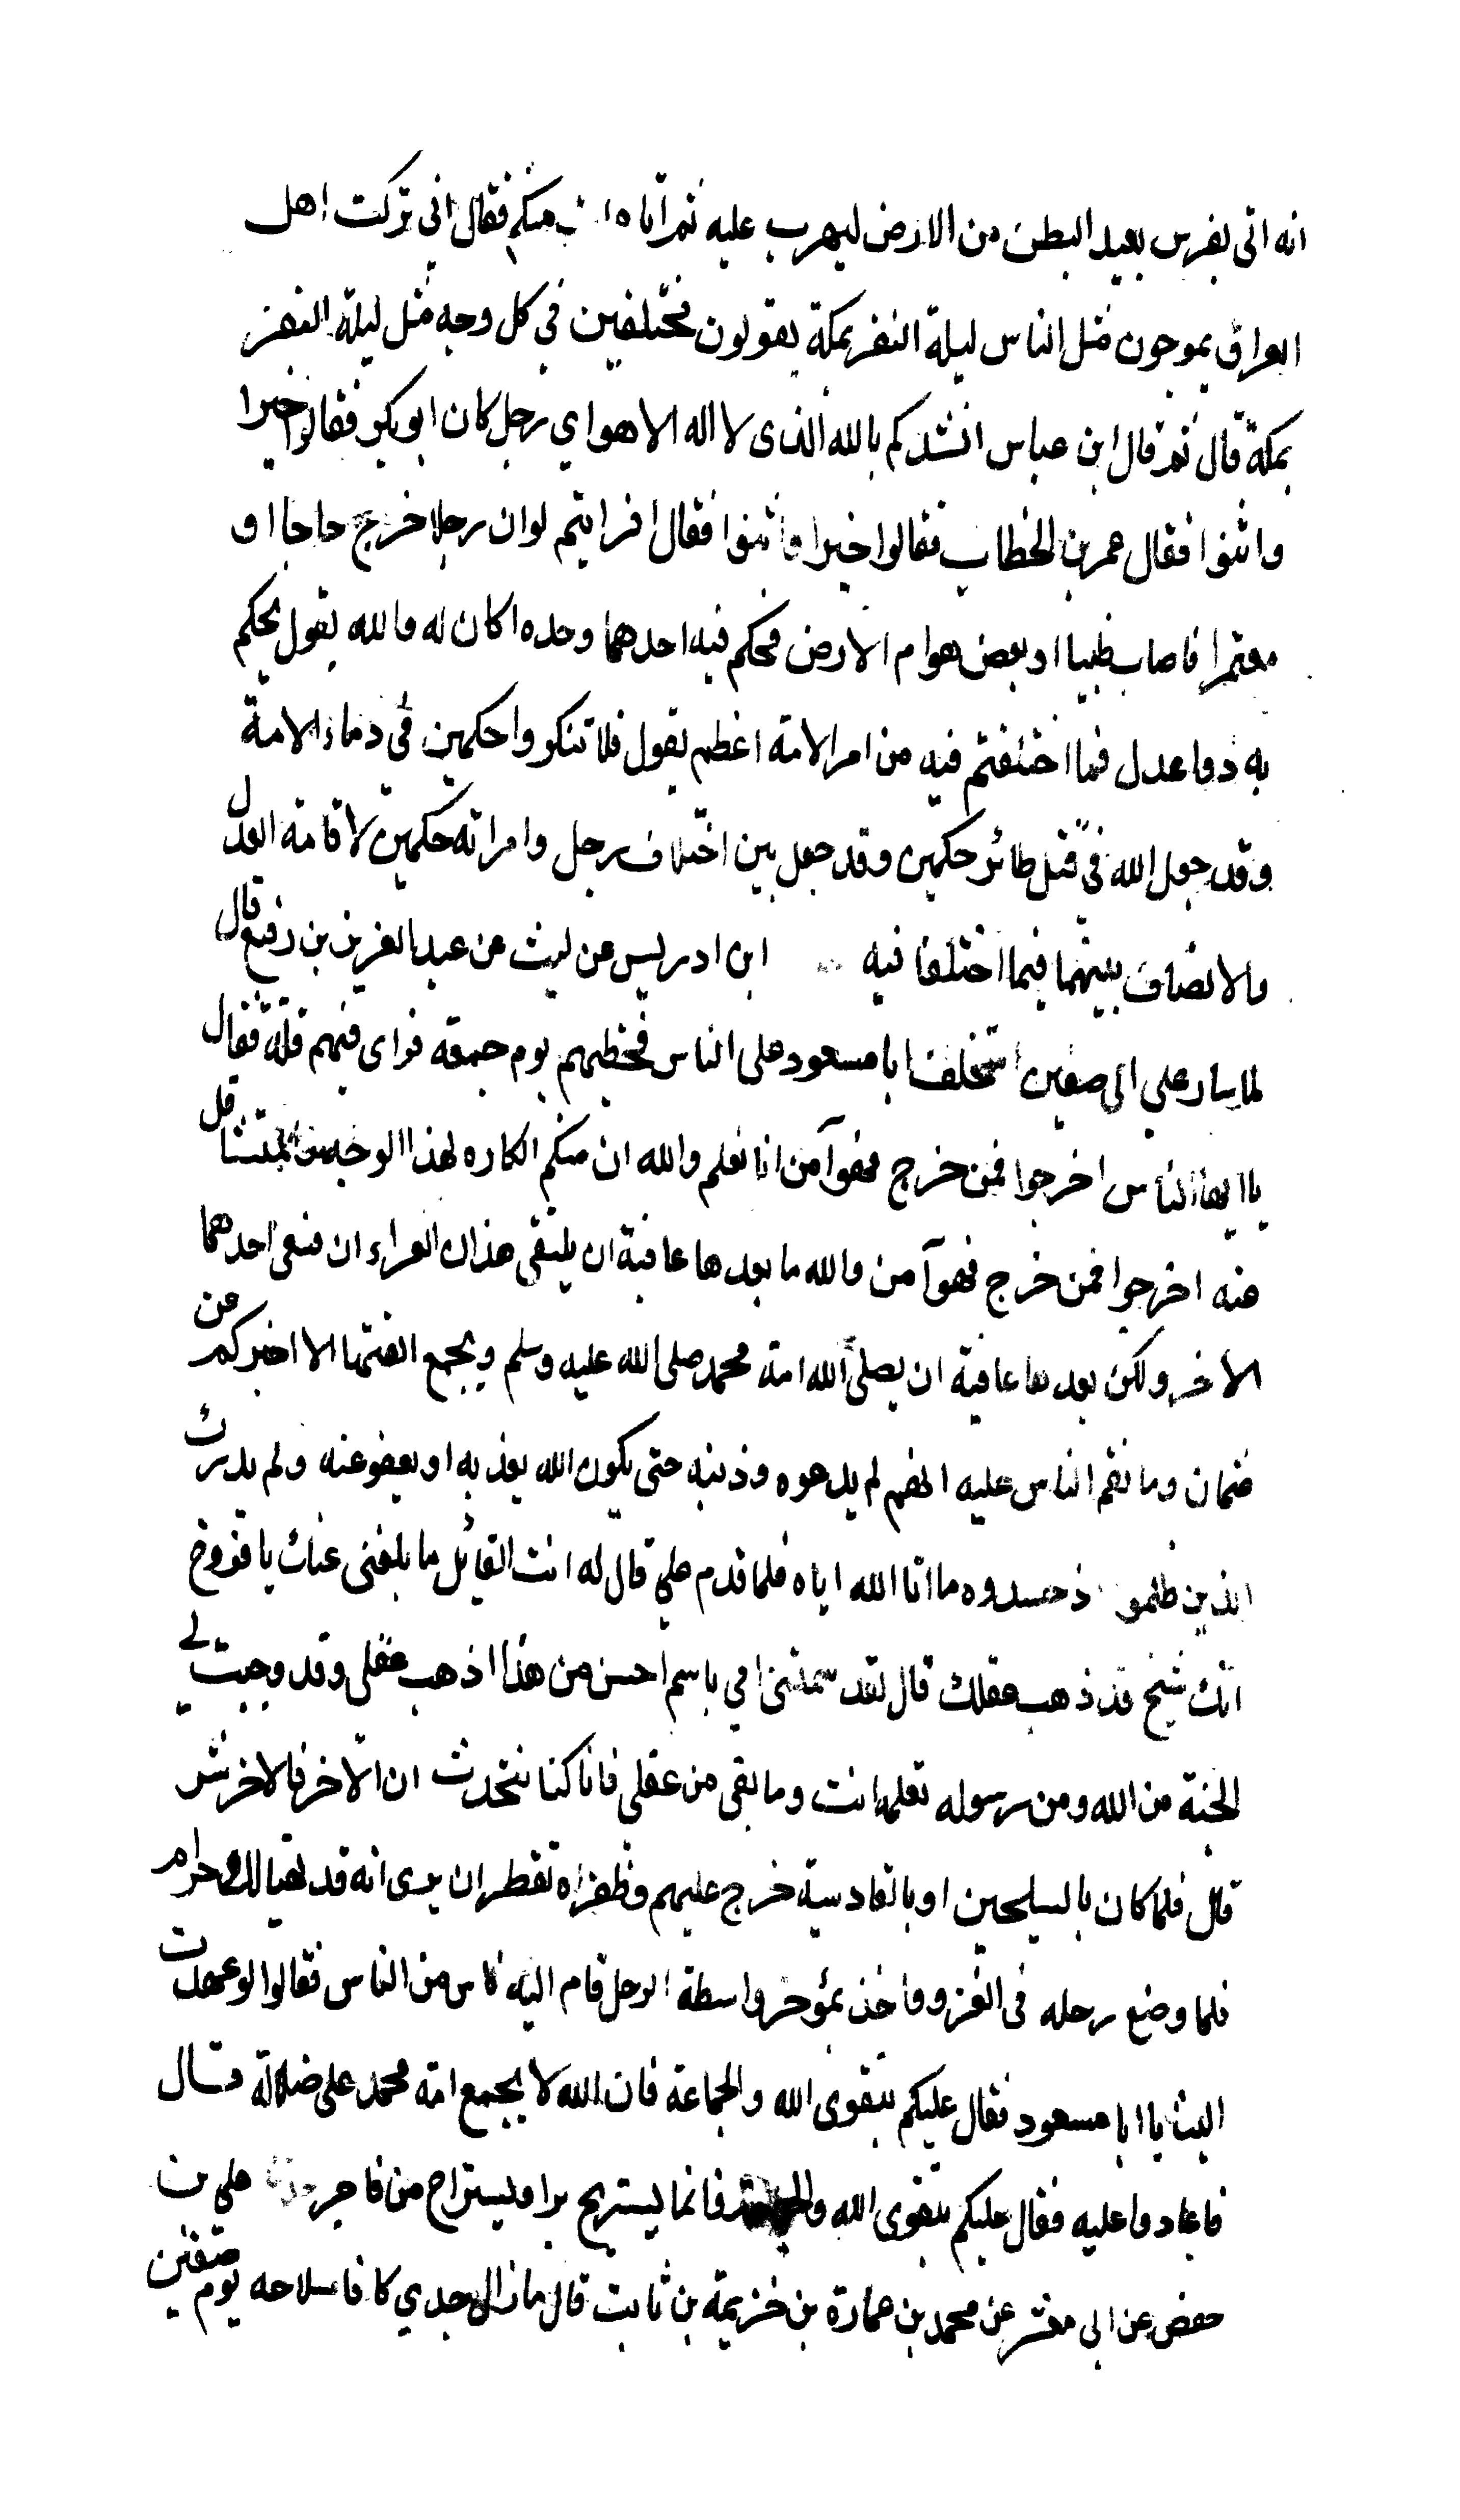 انه اتى بفرس بعيد البطن من الارض ليهرب عليه ثم اتاه منكم فقال اني تركت اهل
العراق يموجون مثل الناس ليلة النفر بمكة يقولون مختلفين في كل وجه مثل ليلة النفر
بمكة قال ثم قال ابن عباس انشدكم بالله الذى لا اله الا هو اي رجل كان ابو بكر فقالوا خيرا
واثنوا فقال عمر بن الخطاب فقالوا خيرا واثنوا فقال افرايتم لو ان رجلا خرج حاجا او
معتمرا فاصاب ظبيا او بعض هوام الارض فحكم فيه احدهما وحده اكان له والله يقول يحكم
به ذوا عدل فما اختلفتم فيه من امر الامة اعظم يقول فلا تنكروا حكمين في دماء الامة
وقد جعل الله في قتل طائر حكمين وقد جعل بين اختلاف رجل وامراته حكمين لاقامة العدل
والانصاف بينهما فيما اختلفا فيه ابن ادريس عن ليث عن عبد العزيز بن رفيع قال
لما سار علي الى صفين استخلف ابا مسعود على الناس فخطبهم يوم جمعة فراى فيهم قلة فقال
يا ايها الناس اخرجوا فمن خرج فهو آمن انا نعلم والله ان منكم الكاره لهذا الوجه والمتثاقل
عنه اخرجوا فمن خرج فهو آمن والله ما بعدها عافية ان يلتقى هذان الغراء ان فنعى احدهما
الاخر ولكن بعدها عافية ان يصلح الله امة محمد صلى الله عليه وسلم ويجمع الفتها الا اخبركم عن
عثمان وما نقم الناس عليه انهم لم يدعوه وذنبه حتى يكون الله يعذبه او يعفو عنه ولم يدرك
الذين ظلموا اذ حسدوه ما اتا الله اياه فلما قدم علي قال له انت القائل ما بلغني عنك يا فروخ
انك شيخ قد ذهب عقلك قال لقد سمتني امي باسم احسن من هذا اذهب عقلي وقد وجبت لي
الجنة من الله ومن رسوله تعلمها انت وما بقى من عقلي فانا كنا نتحدث ان الآخر فالاخر شر
قال فلما كان بالسيلحين او بالقادسية خرج عليهم وظفراه تقطران يرى انه قد تهيا للاحرام
فلما وضع رحله فى الغرز واخذ بمؤخر واسطة الرحل قام اليه ناس من الناس فقالوا لو عهدت
الينا يا ابا مسعود فقال عليكم بتقوى الله والجماعة فان الله لا يجمع امة محمد على ضلالة قال
فاعادوا عليه فقال عليكم بتقوى الله والجماعة فانما يستريح بر او يستراح من فاجر حدثنا علي بن
حفص عن ابى معشر عن محمد بن عمارة بن خزيمة بن ثابت قال ما زال جدي كافا سلاحه يوم صفين